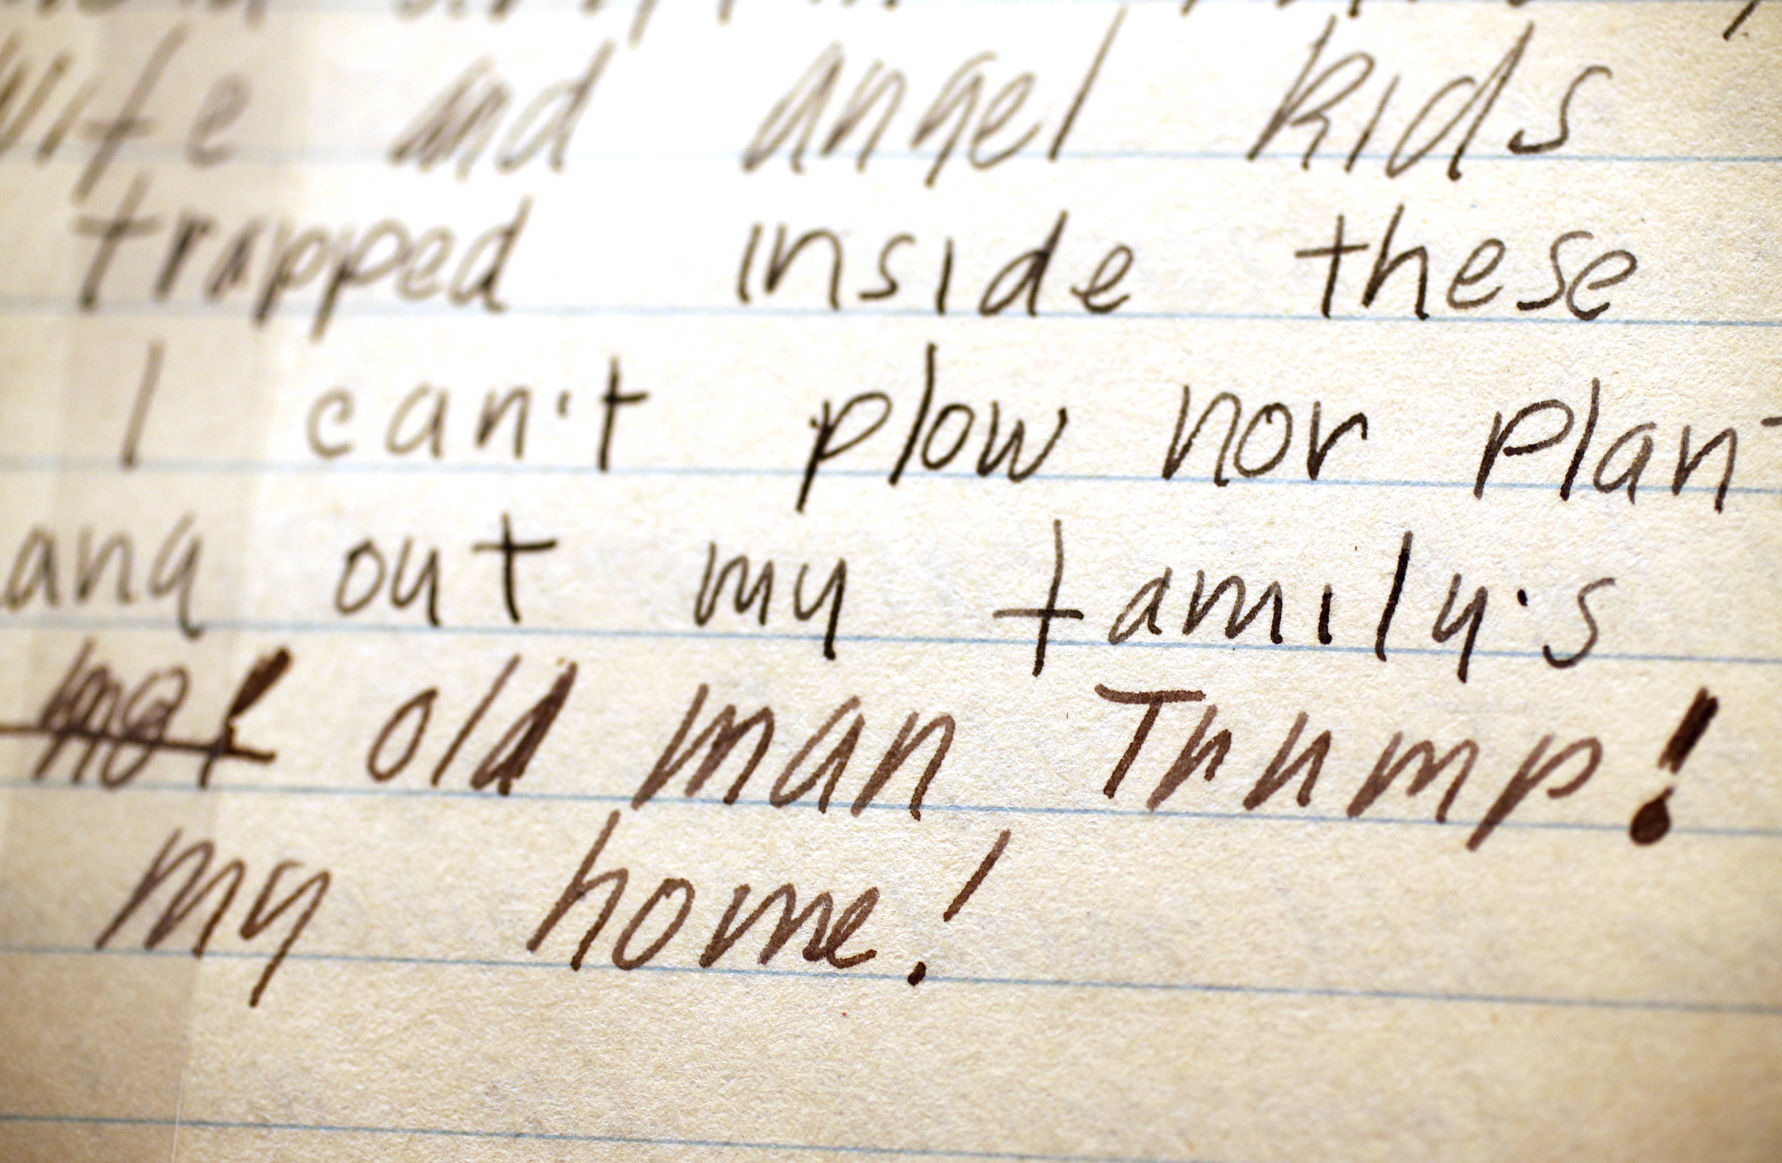 wife and angel kids
trapped inside these
I can't plow nor plant
hang out my family's
old man Trump!
my home!